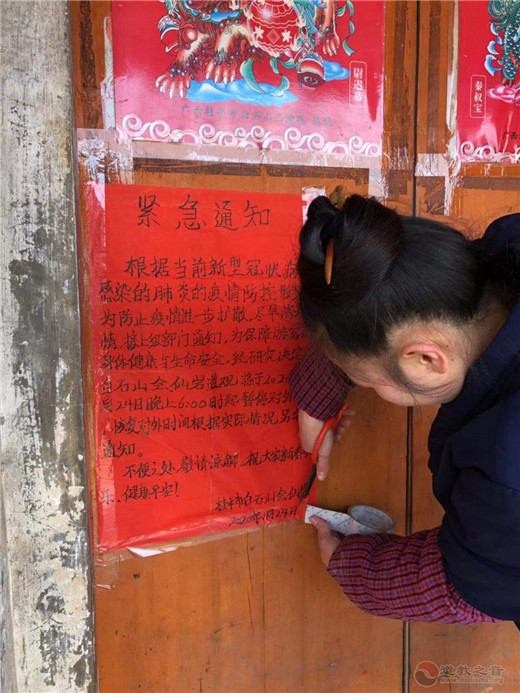 尉迟恭
秦叔宝
紧急通知
根据当前新型冠状病
感染的肺炎的疫情防控
为防止疫情进一步扩散,尽早
情,接上级部门通知,为保障游客
身体健康与生命安全,经研究决定
白石山会仙岩道观,将于202
月24日晚上6:00时起暂停对外
,恢复对外时间根据实际情况,另
通知。
不便之处,敬请谅解。祝大家新春
乐、健康平安!
桂平市白石山会仙
2020年1月2
道教之音